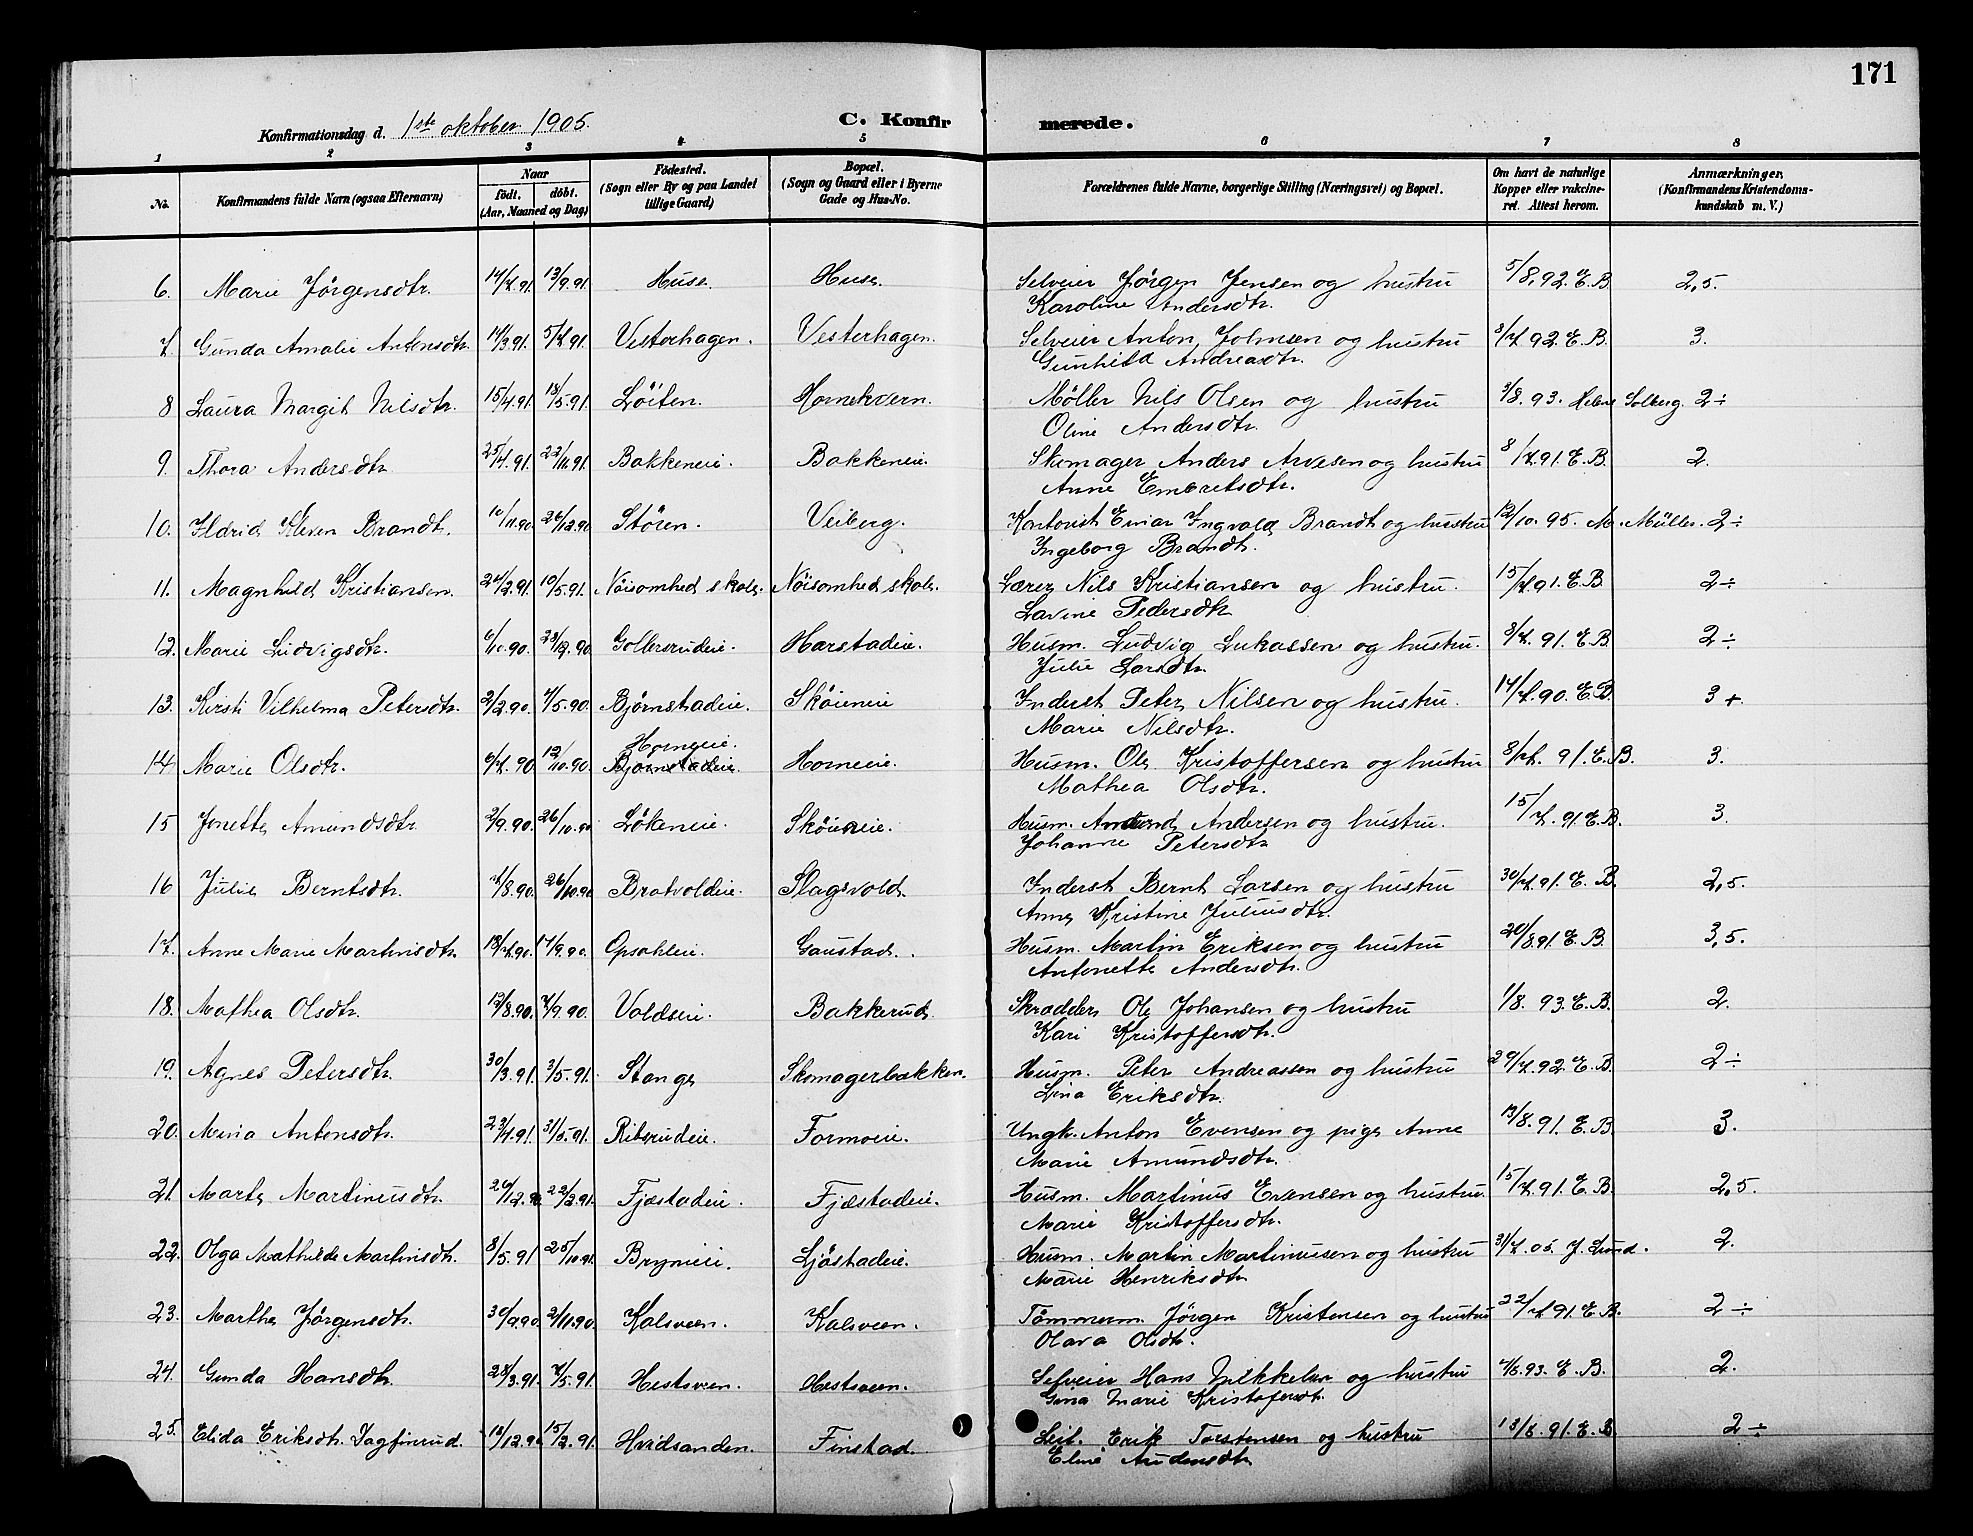 171
Konfirmationsdag d. 1ste oktober 1905. C. Konfirmerede.
1 2 3 4 5 6 7 8
No. Konfirmandens fulde Navn (ogsaa Efternavn) Naar født. døbt. (Aar, Maaned og Dag) Fødested. (Sogn eller By og paa Landet tillige Gaard) Bopæl. (Sogn og Gaard eller i Byerne Gade og Hus-No. Forældrenes fulde Navne, borgerlige Stilling (Næringsvei) og Bopæl. Om havt de naturlige Kopper eller vakcineret. Attest herom. Anmærkninger, (Konfirmandens Kristendomskundskab m. V.)
6. Marie Jørgensdtr. 14/7.91. 13/9.91. Huse. Huse. Selveier Jørgen Jensen og hustru 5/8.92. E.B. 2,5.
Karoline Andersdtr.
7. Gunda Amalie Antonsdtr. 14/3.91. 5/7.91. Vesterhagen. Vesterhagen. Selveier Anton Johnsen og hustru 3/7.92. E.B. 3.
Gunhild Andreasdtr.
8 Laura Margit Nilsdtr. 15/4.91. 18/5.91. Løiten. Hornekvern. Møller Nils Olsen og hustru 3/8.93. Helene Solberg. 2÷
Oline Andersdtr.
9. Thora Andersdtr. 25/4.91. 22/11.91. Bakkeneie. Bakkeneie. Skomager Anders Arvesen og hustru 8/7.91. E.B. 2.
Anne Embretsdtr.
10. Ildrid Kleven Brandt. 10/11.90. 26/12.90. Støren. Veiberg. Kontorist Einar Ingvald Brandt og hustru 12/10.95. M. Müller. 2÷
Ingeborg Brandt.
11. Magnhild Kristiansen. 24/2.91. 10/5.91. Nøisomhed skole. Nøisomhed skole. Lærer Nils Kristiansen og hustru. 15/7.91. E.B. 2÷
Lavine Pedersdtr.
12. Marie Ludvigsdtr. 6/10.90. 28/12.90. Gollerudeie. Harstadeie. Husm. Ludvig Lukassen og hustru. 3/7.91. E.B. 2÷
Julie Larsdtr.
13. Kirsti Vilhelma Petersdtr. 2/2.90. 4/5.90. Bjørnstadeie. Skøieneie Inderst Peter Nilsen og hustru. 14/7.90. E.B. 3+.
Marie Nilsdtr.
14 Marie Olsdtr. 6/7.90. 12/10.90. Horneie. Bjørnstadeie. Horneie. Husm. Ole Kristoffersen og hustru 8/7.91. E.B. 3.
Mathea Olsdtr.
15 Jonette Amundsdtr. 2/9.90. 26/10.90. Løkeneie. Skøieneie. Husm. Amund Andersen og hustru. 15/7.91. E.B. 3.
Johanne Petersdtr
16 Julie Berntsdtr. 7/8.90. 26/10.90. Bratvoldeie. Slagsvold. Inderst Bernt Larsen og hustru 30/7.91. E.B. 2,5.
Anne Kristine Juliusdtr.
17. Anne Marie Martinsdtr. 18/7.90. 14/9.90. Opsahleie. Gaustad. Husm. Martin Eriksen og hustru 20/8.91. E.B. 3,5.
Antonette Andersdtr.
18. Mathea Olsdtr. 12/8.90. 7/9.90. Voldseie. Bakkerud. Skrædder Ole Johansen og hustru 1/8.93. E.B. 2.
Kari Kristoffersdtr.
19. Agnes Petersdtr. 30/3.91. 3/5.91. Stange Skomagerbakken. Husm. Peter Andreassen og hustru 29/7.92. E.B. 2÷
Lina Eriksdtr.
20. Mina Antonsdtr. 23/4.91. 31/5.91. Riberudeie. Formoeie. Ungk. Anton Evensen og pige Anne 13/8.91. E.B. 3.
Marie Amundsdtr.
21. Marte Martinusdtr. 26/12.90 22/2.91. Fjæstadeie. Fjæstadeie. Husm. Martinus Evensen og hustru. 15/7.91. E.B. 2,5.
Marie Kristoffersdtr.
22. Olga Mathilde Martinsdtr. 8/5.91 25/10.91. Brynieie. Ljøstadeie. Husm. Martin Martinusen og hustru 31/7.05. J. Lund. 2.
Marie Henriksdtr
23. Marthe Jørgensdtr. 30/9.90. 2/11.90. Kalsveen. Kalsveen. Tømmerm. Jørgen Kristensen og hustru 22/7.91. E.B. 2÷
Olava Olsdtr.
24. Gunda Hansdtr. 28/3.91. 7/5.91. Hestsveen. Hestsveen. Selveier Hans Mikkelsen og hustru 4/6.93. E.B. 2.
Gina Marie Kristofersdtr.
25. Elida Eriksdtr. Dagfinrud. 16/12.90 15/2.91. Hvidsanden. Finstad. Leil. Erik Torstensen og hustru 13/8.91. E.B. 2÷
Eline Audensdtr